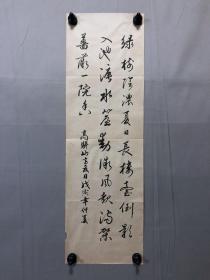 绿树阴浓夏日长楼台倒影
入池塘水晶帘动微风起满架
蔷薇一院香 高骈山亭夏日